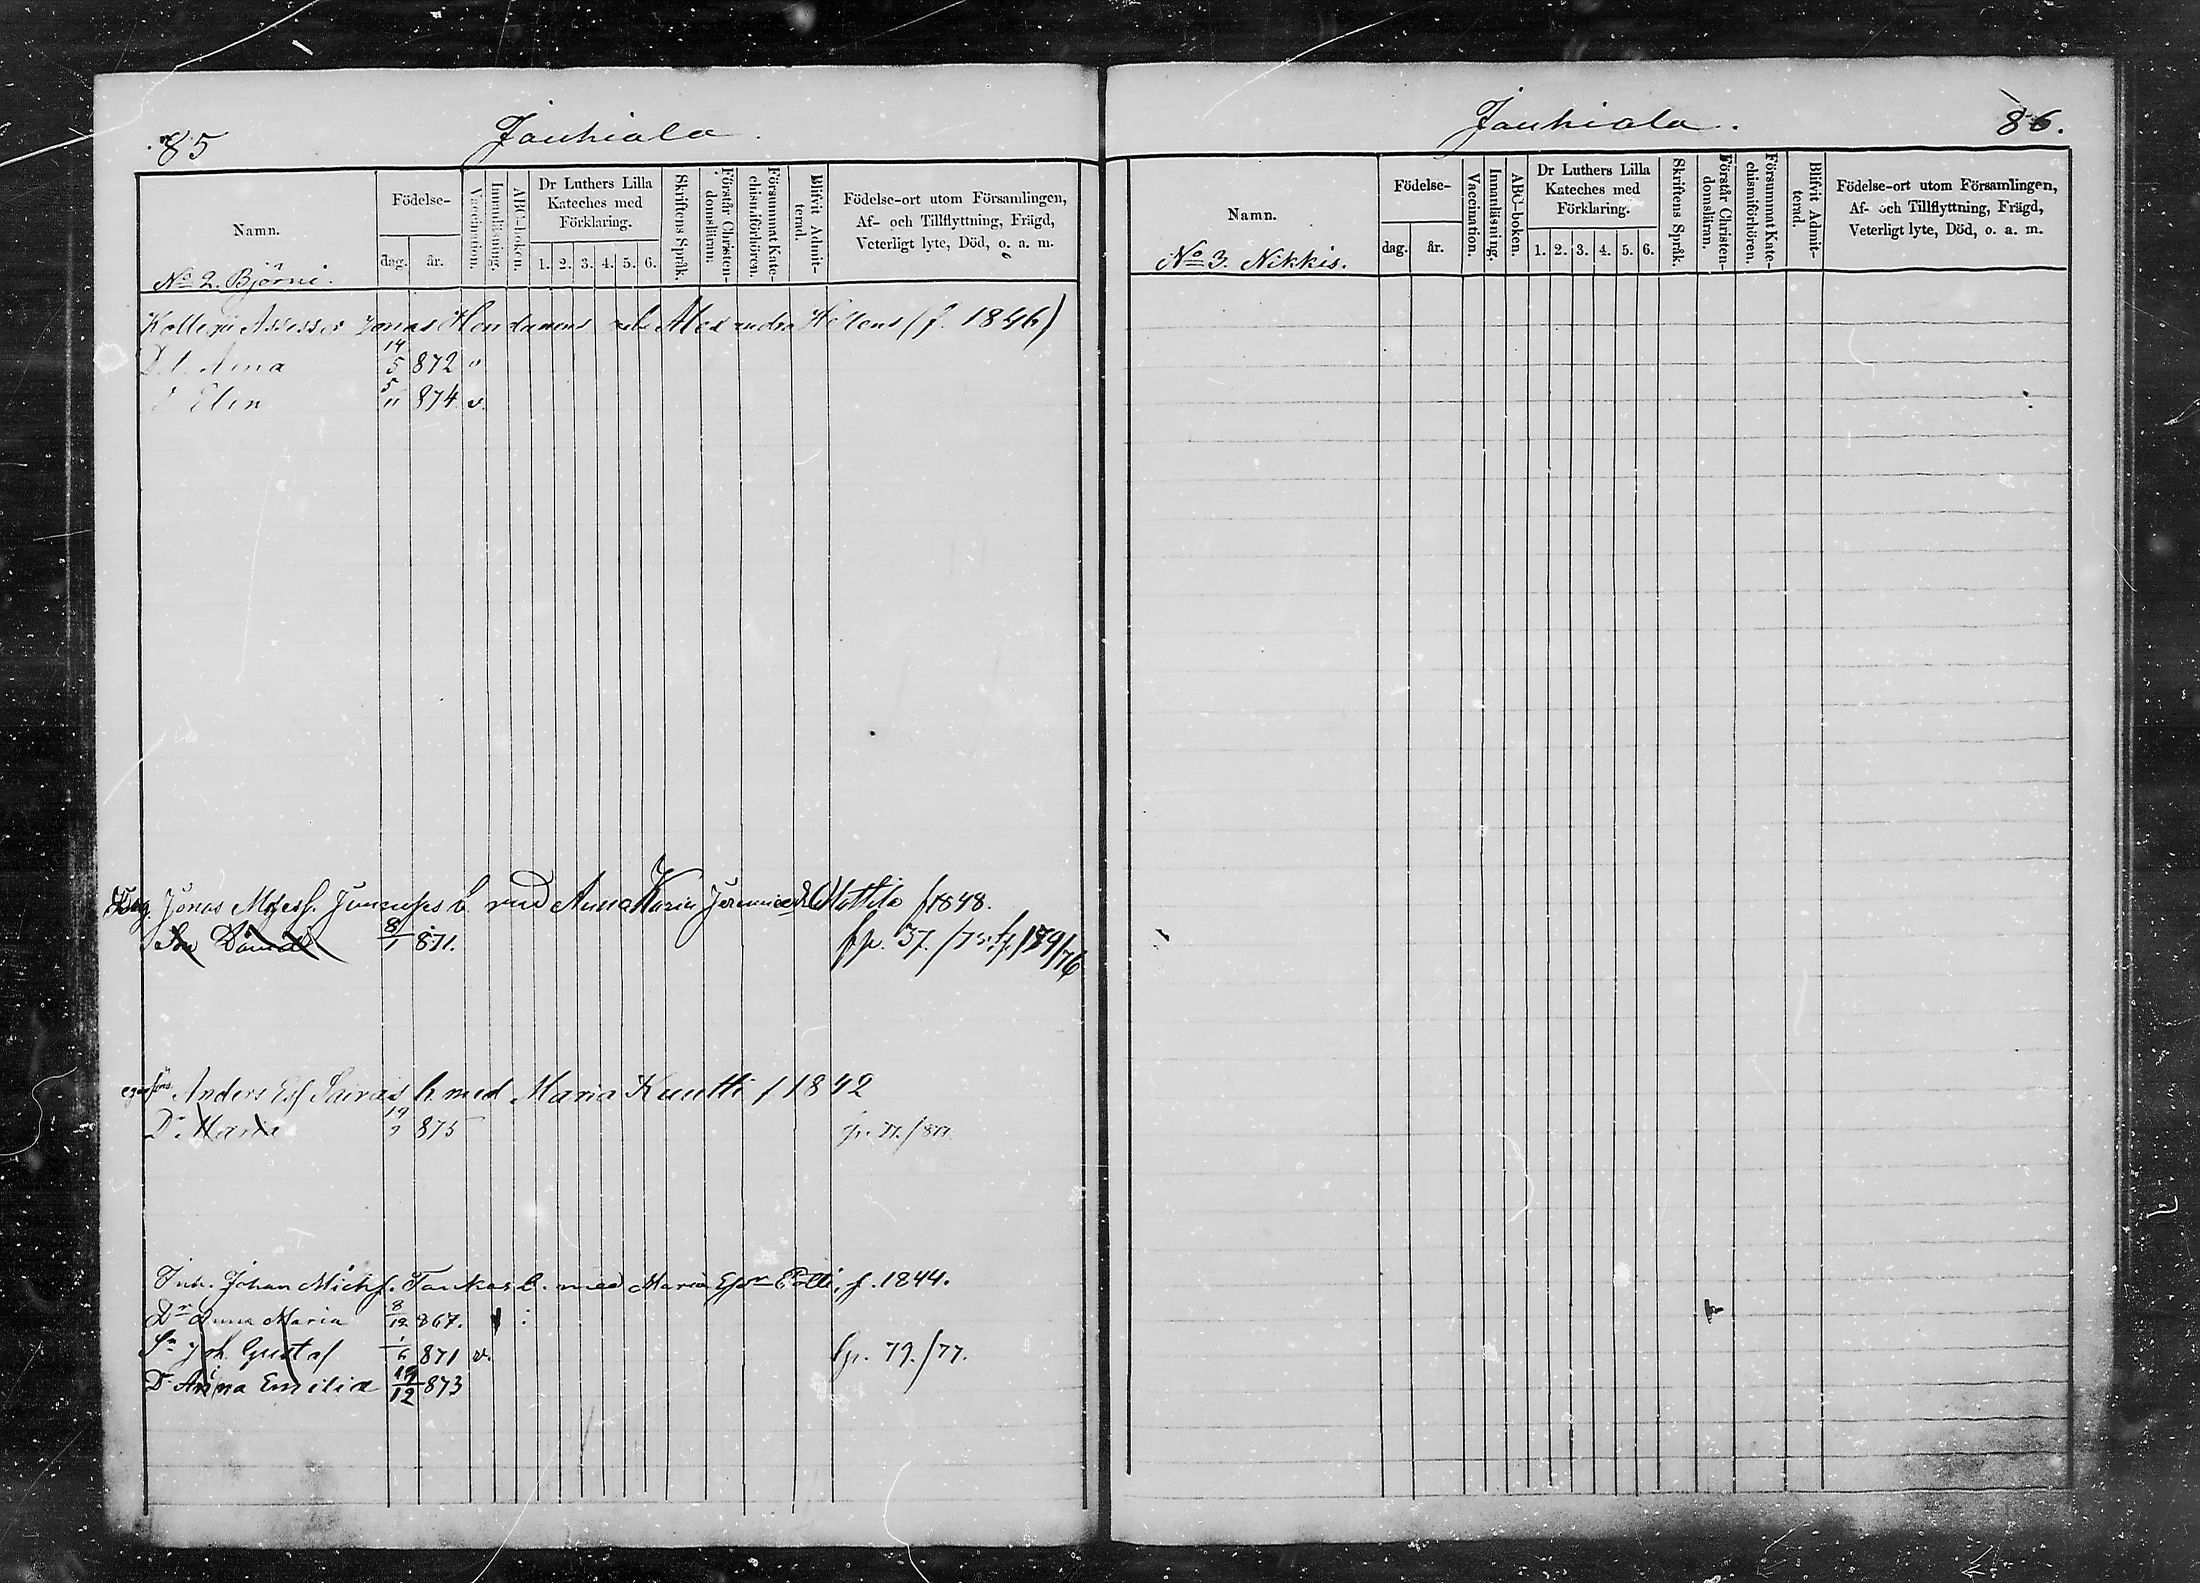 85
Jauhiala.
Namn.
Födelse-
dag.
år.
Vaccination.
Innanläsning.
ABC-boken.
Dr Luthers Lilla
Kateches med
Förklaring.
1. 2. 3. 4. 5. 6.
Skriftens Språk.
Förstår Christen-
domsläran.
Försummat Kate-
chismiförhören.
Blifvit Admit-
terad.
Födelse-ort utom Församlingen,
Af- och Tillflyttning, Frägd,
Veterligt lyte, Död, o. a. m.
No 2. Björni.
Assessor Jonas (f. 1846)
D. Aina 14/5 872 v
Elin 5/11 874 v.
Jonas b. med Anna Karin Mattila f 1848.
Son 8/1 871. fp. 37.
Anders b. med Maria f 1842
D. Maria 875
Inh. Johan Michf. b. med Maria f. 1844.
Dr Anna Maria 8/12 867.
Sn Joh. Gustaf 1/6 871 v. fp. 79./77.
D. Anna Emilia 19/12 873
Jauhiala.
86.
Namn.
Födelse-
dag.
år.
Vaccination.
Innanläsning.
ABC-boken.
Dr Luthers Lilla
Kateches med
Förklaring.
1. 2. 3. 4. 5. 6.
Skriftens Språk.
Förstår Christen-
domsläran.
Försummat Kate-
chismiförhören.
Blifvit Admit-
terad.
Födelse-ort utom Församlingen,
Af- och Tillflyttning, Frägd,
Veterligt lyte, Död, o. a. m.
No 3. Nikkis.